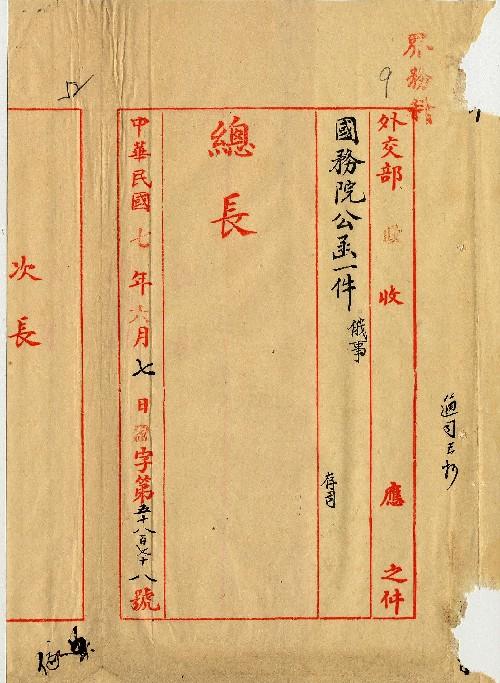 界務
9
外交部收收應之件
國務院公函一件
俄事
存司
總長
中華民國七年六月七日字第五千八百七十八號
次長